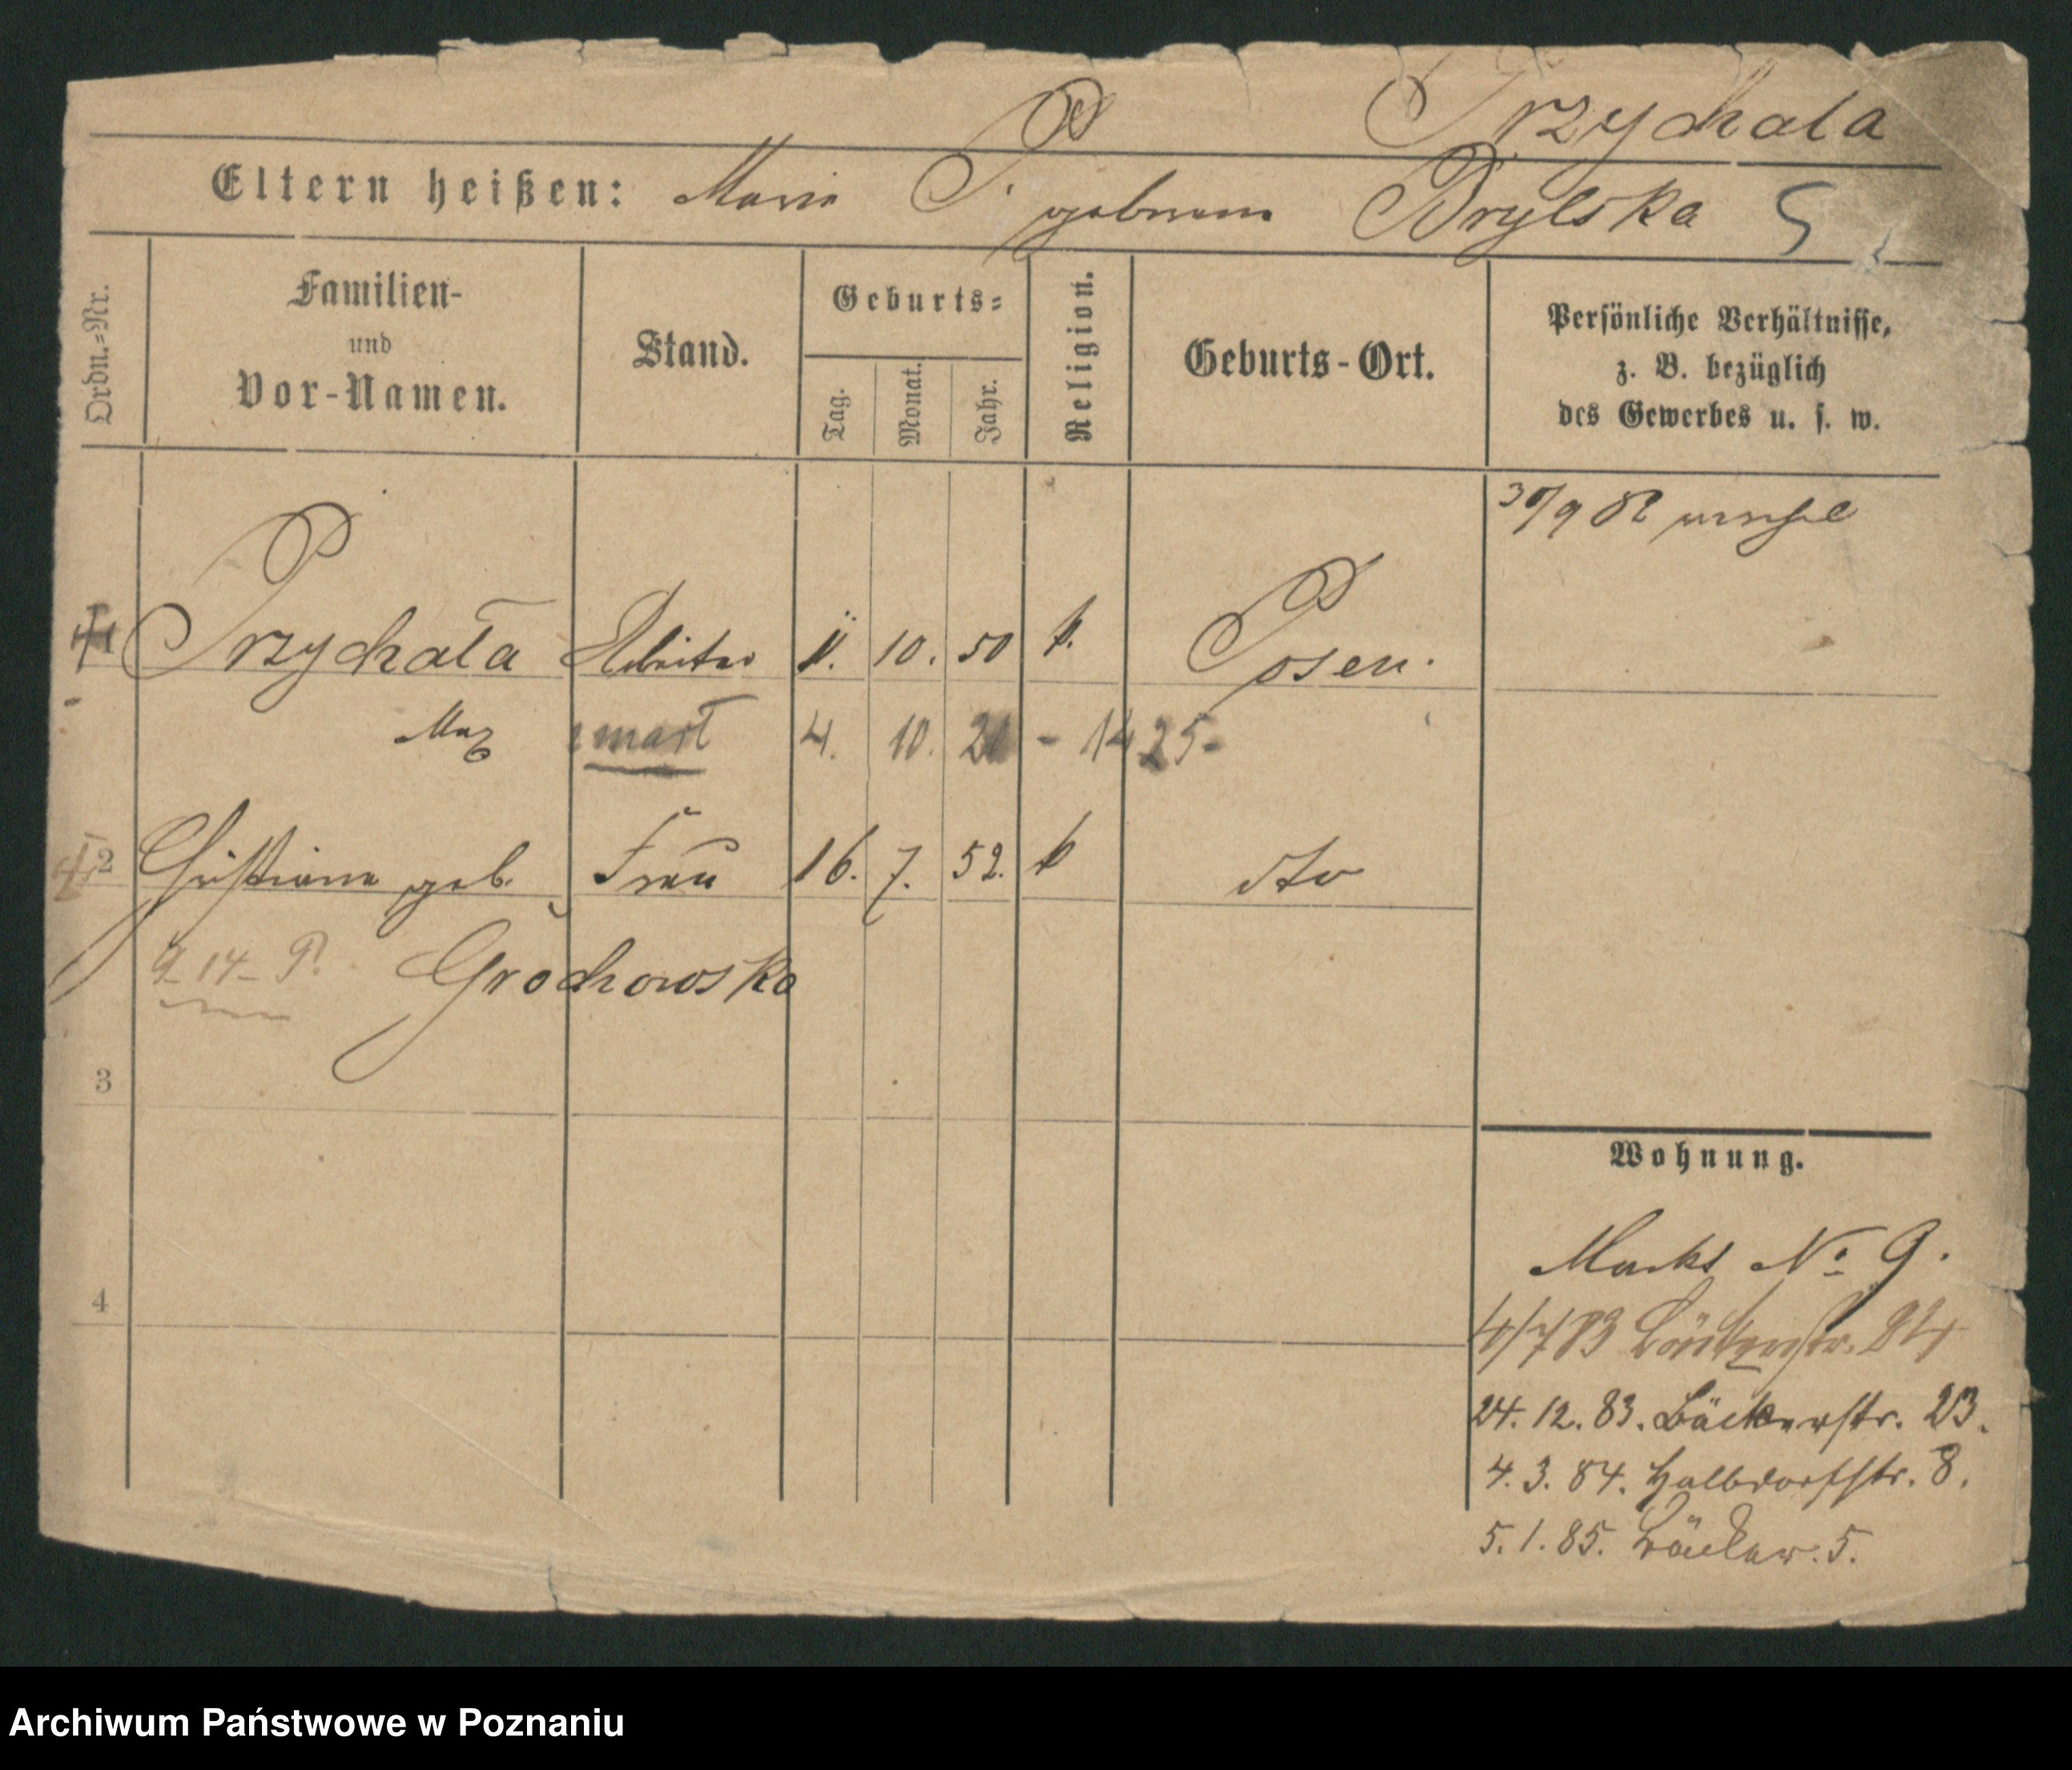 Przychała
Eltern heißen: Maria P. geborene Brylska
Ordn.=Nr.
Familien-
und
Vor-Namen.
Stand.
Geburts=
Tag.
Monat.
Jahr.
Religion.
Geburts-Ort.
Persönliche Verhältnisse,
z. B. bezüglich
des Gewerbes u. s. w.
30/9 82
1 Przychała Arbeiter 11. 10. 50 k. Posen.
Max zmarł 4. 10. - 1425-
2 Christiana geb. Frau 16. 7. 52. k dto
9-14- P. Grochowska
3
4
Wohnung.
Markt No 9.
4/7 83 Bäckerstr. 24
24. 12. 83. Bäckerstr. 23.
4. 3. 84. Halbdorfstr. 8.
5. 1. 85. Bäcker. 5.
Archiwum Państwowe w Poznaniu